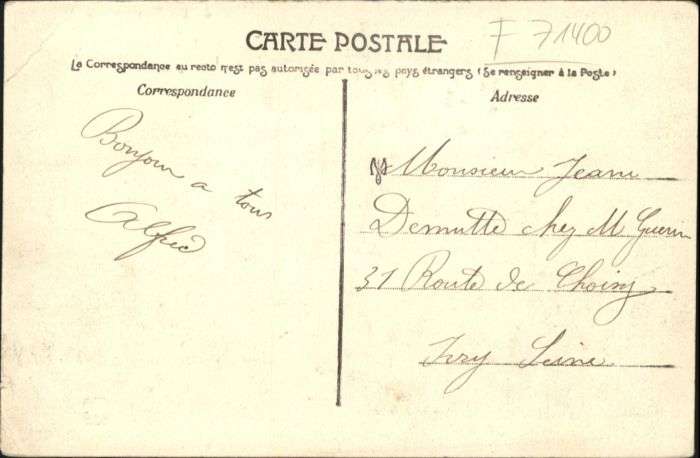 F 71400
CARTE POSTALE
La Correspondance au recto n'est pas autorisée par tous les pays étrangers (Se renseigner à la Poste)
Correspondance
Adresse
Bonjour a tous
Alfred
Monsieur Jean
Demutte chez M Guerin
31 Route de Choisy
Ivry Seine